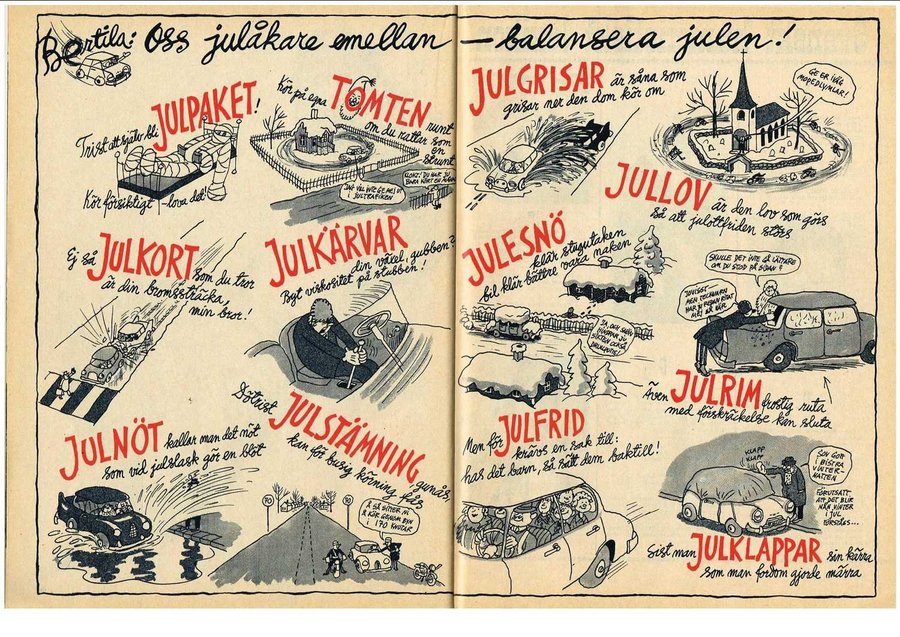 Bertila: Oss julåkare emellan — balansera julen!
JULPAKET!
Trist att själv bli
Kör försiktigt – lova det!
Kör på egna
TOMTEN
om du rattar som
runt
en
strunt
JULGRISAR är såna som
grisar ner den dom kör om
GE ER IVÄG
MOPEDLYMLAR!
JULLOV är den lov som görs
så att julottfriden störs
Ej så
JULKORT som du tror
är din bromssträcka,
min bror!
JULKÄRVAR
din växel, gubben?
Byt viskositet på stubben!
JULESNÖ
klär stugutaken
bil klär bättre vara naken
JA, OCH SKULL
SIKTEN OCKSÅ
SKULLE DET INTE GÅ LÄTTARE
OM DU STOD PÅ SIDAN?
MEN DESSUTOM
HAR DU REDAN KÖRT
MEJ NÅ BÅR
Även
JULRIM frostig ruta
med förskräckelse kan sluta
JULNÖT kallar man det nöt
som vid julslask gör en blöt
Sötrist
JULSTÄMNING
kan för busig körning fås
70
70
Å SÅ SITTER NI
Å KÖR GENOM BYN
I 170 KNUTAR
Men för
JULFRID
krävs en sak till:
has det barn, så sätt dem baktill!
KLAPP
KLAPP
SOV GOTT
I BISTRA
VINTER-
NATTEN
FÖRUTSATT
ATT DET BLIR
NÅN VINTER
I JUL
FÖRSTÅS...
Sist man
JULKLAPPAR sin kärra
som man fordom gjorde märra